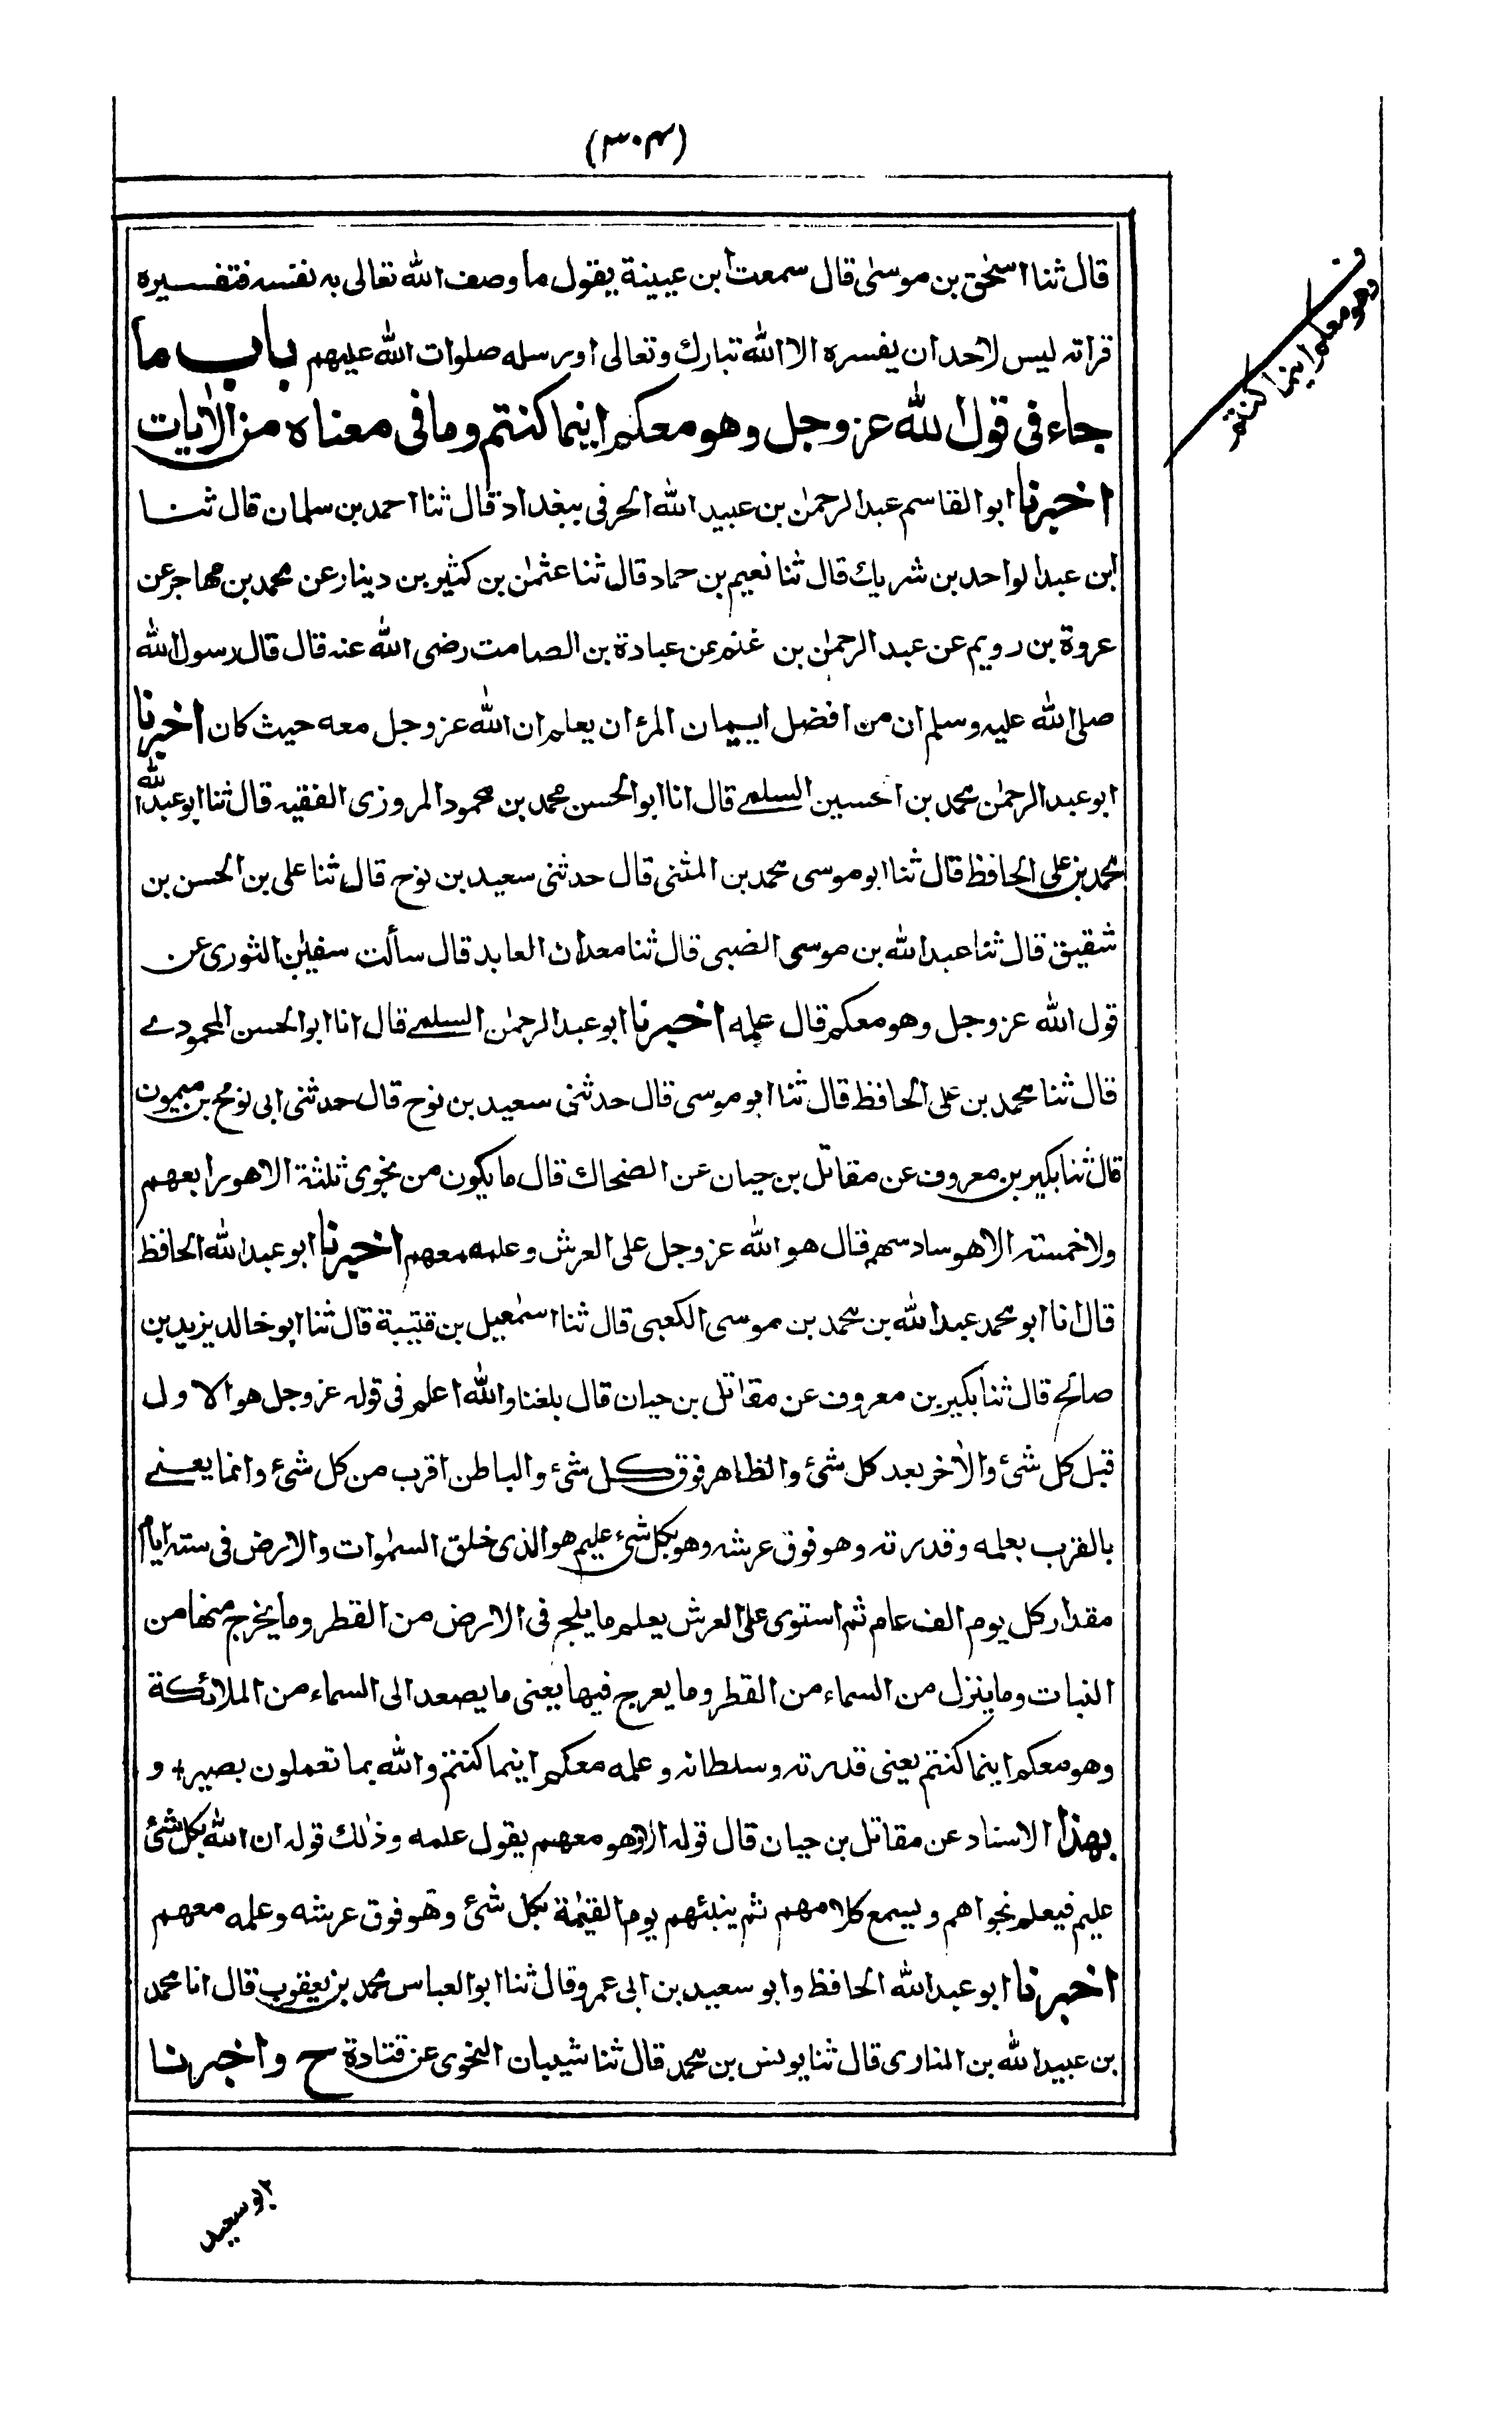 (٣٠٤)
قال ثنا اسحٰق بن موسىٰ قال سمعت ابن عيينة يقول ما وصف الله تعالى به نفسه فتفسيره
قراته ليس لاحد ان يفسره الا الله تبارك وتعالى او رسله صلوات الله عليهم باب ما
جاء فى قول الله عز وجل وهو معكم اينما كنتم وما فى معناه من الاٰيات
وهو معكم اينما كنتم
اخبرنا ابو القاسم عبد الرحمٰن بن عبيد الله الحرفى ببغداد قال ثنا احمد بن سلمان قال ثنا
ابن عبد الواحد بن شريك قال ثنا نعيم بن حماد قال ثنا عثمٰن بن كثير بن دينار عن محمد بن مهاجر عن
عروة بن رويم عن عبد الرحمٰن بن غنم عن عبادة بن الصامت رضى الله عنه قال قال رسول الله
صلى الله عليه وسلم ان من افضل ايمان المرء ان يعلم ان الله عز وجل معه حيث كان اخبرنا
ابو عبد الرحمٰن محمد بن الحسين السلمے قال انا ابو الحسن محمد بن محمود المروزى الفقيه قال ثنا ابو عبد الله
محمد بن على الحافظ قال ثنا ابو موسى محمد بن المثنى قال حدثنى سعيد بن نوح قال ثنا على بن الحسن بن
شقيق قال ثنا عبد الله بن موسى الضبى قال ثنا معدان العابد قال سألت سفيٰن الثورى عن
قول الله عز وجل وهو معكم قال علمه اخبرنا ابو عبد الرحمٰن السلمے قال انا ابو الحسن المحمودے
قال ثنا محمد بن على الحافظ قال ثنا ابو موسى قال حدثنى سعيد بن نوح قال حدثنى ابى نوح بن ميمون
قال ثنا بكير بن معروف عن مقاتل بن حيان عن الضحاك قال ما يكون من نجوى ثلثة الا هو رابعهم
ولا خمسة الا هو سادسهم قال هو الله عز وجل على العرش وعلمه معهم اخبرنا ابو عبد الله الحافظ
قال انا ابو محمد عبد الله بن محمد بن موسى الكعبى قال ثنا اسمٰعيل بن قتيبة قال ثنا ابو خالد يزيد بن
صالح قال ثنا بكير بن معروف عن مقاتل بن حيان قال بلغنا والله اعلم فى قوله عز وجل هو الاول
قبل كل شئ والاٰخر بعد كل شئ والظاهر فوق كل شئ والباطن اقرب من كل شئ وانما يعنے
بالقرب بعلمه وقدرته وهو فوق عرشه وهو بكل شئ عليم هو الذى خلق السمٰوات والارض فى ستة ايام
مقدار كل يوم الف عام ثم استوى على العرش يعلم ما يلج فى الارض من القطر وما يخرج منها من
النبات وما ينزل من السماء من القطر وما يعرج فيها يعنى ما يصعد الى السماء من الملائكة
وهو معكم اينما كنتم يعنى قدرته وسلطانه وعلمه معكم اينما كنتم والله بما تعملون بصير + و
بهذا الاسناد عن مقاتل بن حيان قال قوله الا وهو معهم يقول علمه وذٰلك قوله ان الله بكل شئ
عليم فيعلم نجواهم ويسمع كلامهم ثم ينبئهم يوم القيٰمة بكل شئ وهو فوق عرشه وعلمه معهم
اخبرنا ابو عبد الله الحافظ وابو سعيد بن ابى عمرو قال ثنا ابو العباس محمد بن يعقوب قال انا محمد
بن عبيد الله بن المنارى قال ثنا يونس بن محمد قال ثنا شيبان النحوى عن قتادة ح واخبرنا
ابو سعيد